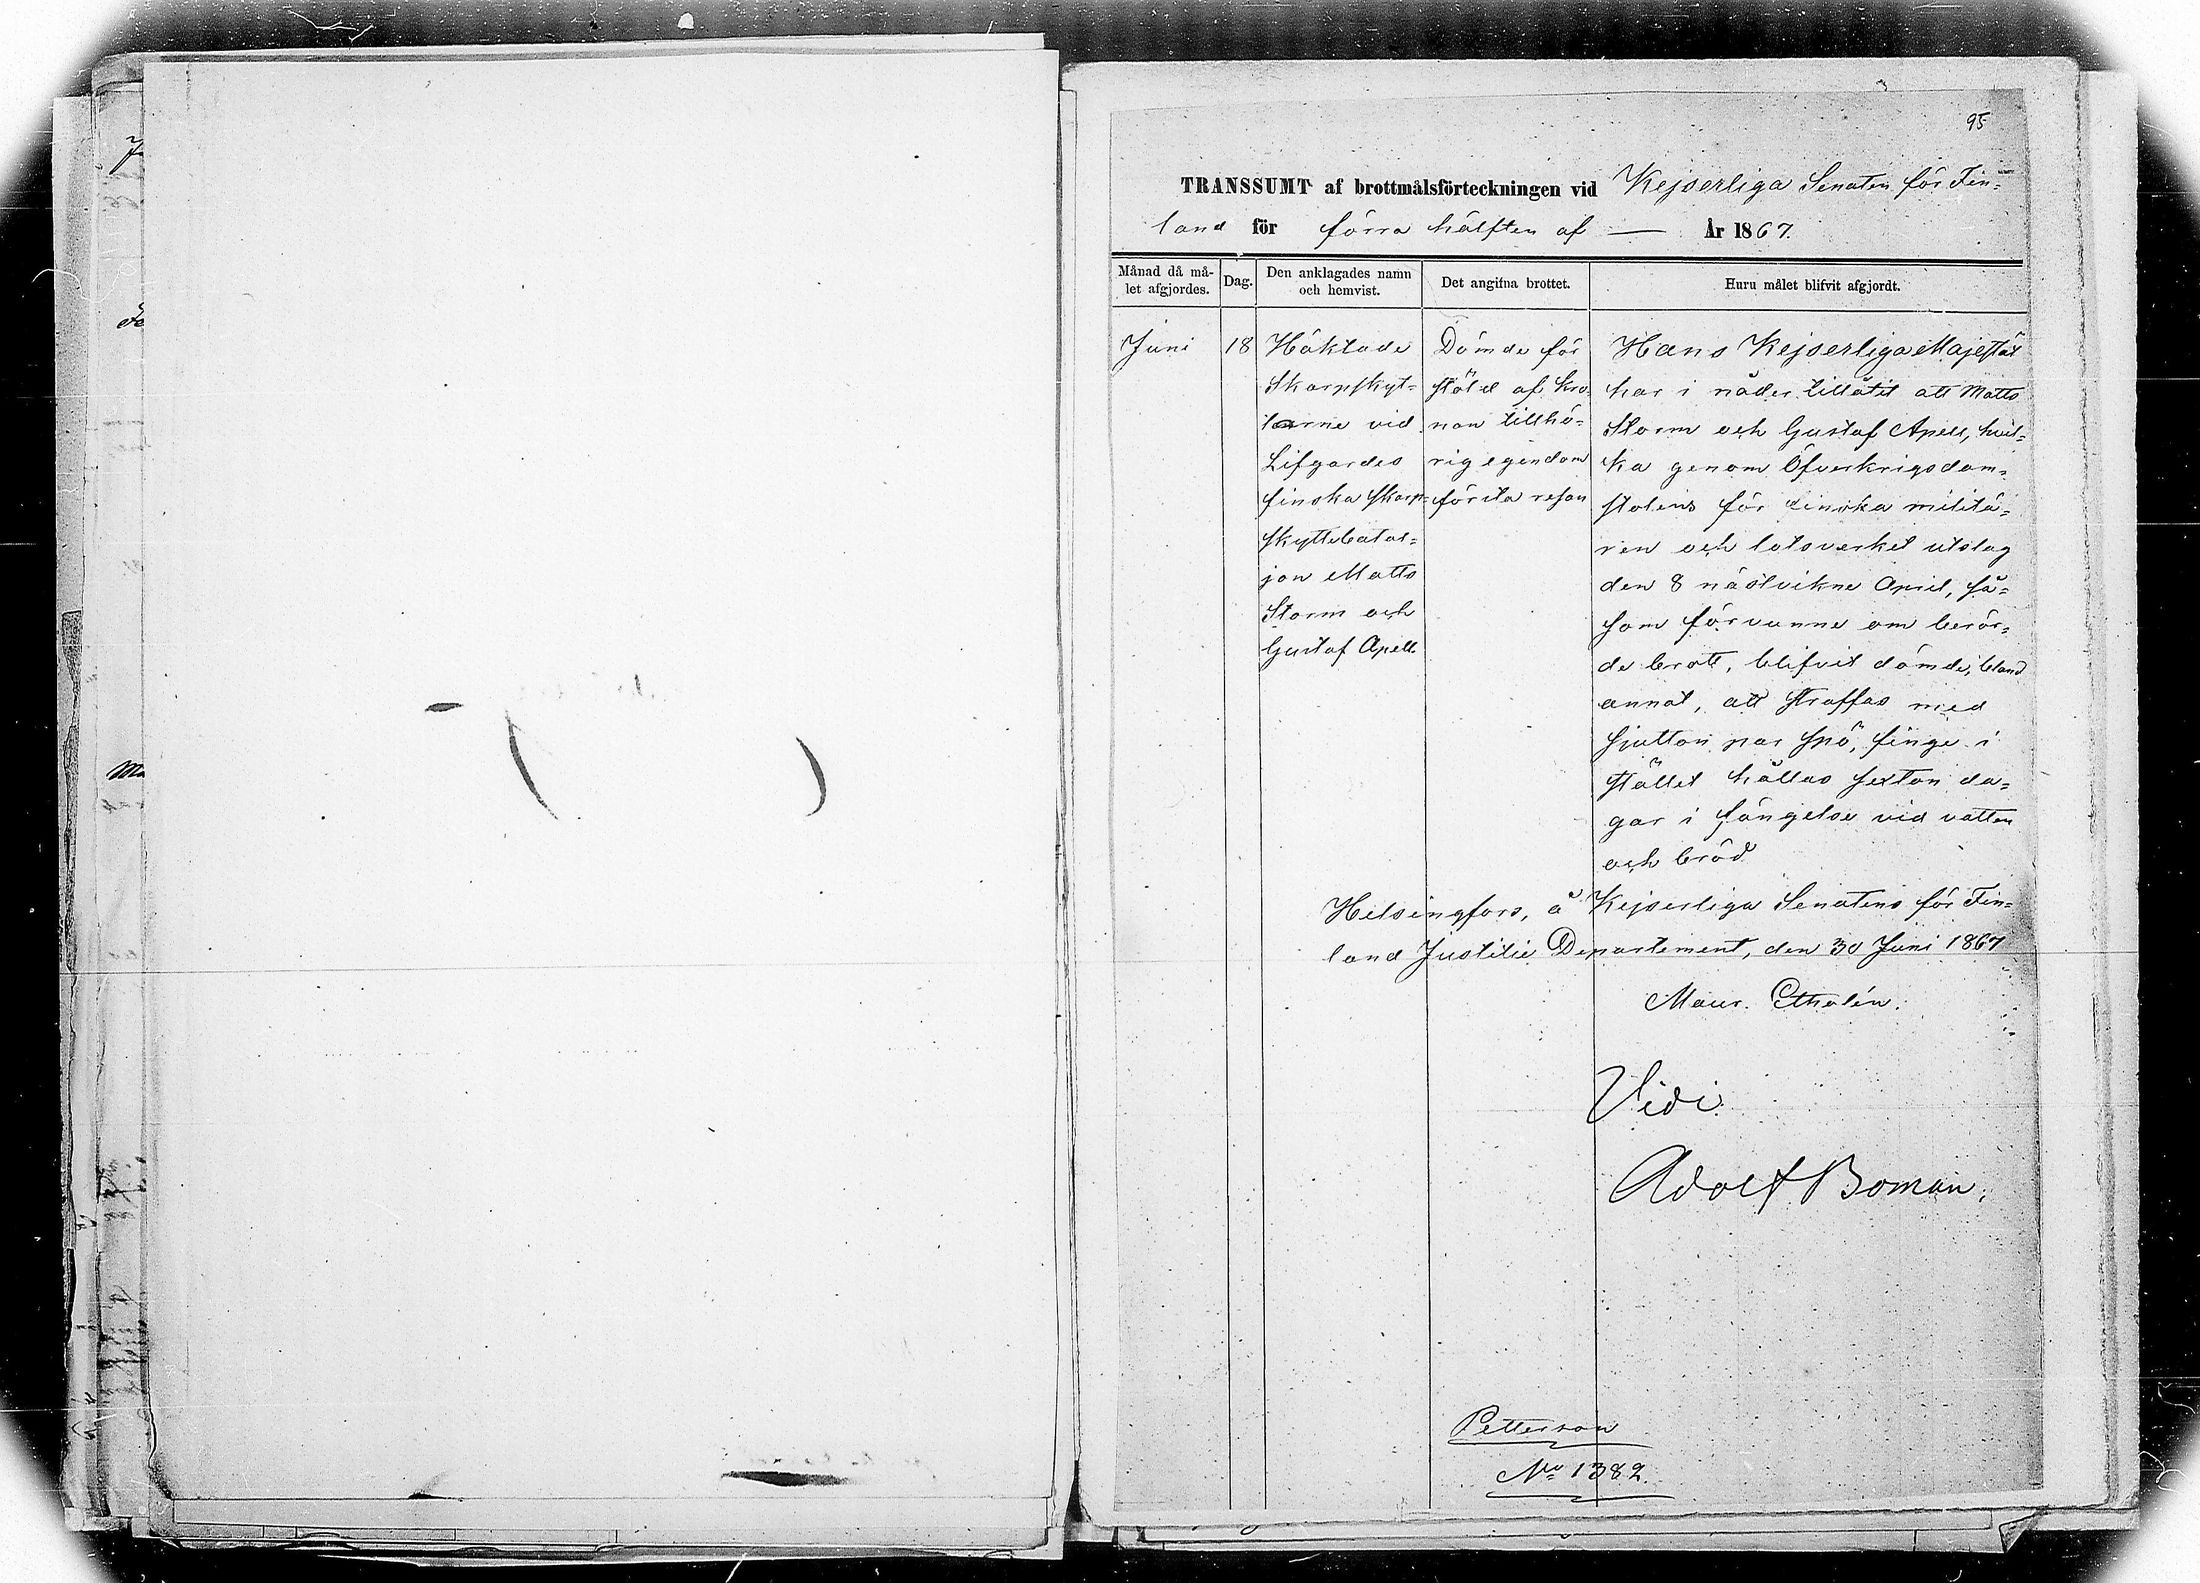 95
TRANSSUMT af brottmålsförteckningen vid Kejserliga Senaten för Fin=
land för förra hälften af — År 1867.
Månad då må-
let afgjordes.
Dag.
Den anklagades namn
och hemvist.
Det angifna brottet.
Huru målet blifvit afgjordt.
Juni
18
Häktade
Skarpskyt=
tarne vid
Lifgardes
finska skarp=
skyttebatal=
jon Matts
Storm och
Gustaf Apell.
Dömde för
stöld af kro=
nan tillhö=
rig egendom
första resan
Hans Kejserliga Majestät
har i nåder tillåtit att Matts
Storm och Gustaf Apell, hvil=
ka genom Öfverkrigsdom=
stolens för finska militä=
ren och lotsverket utslag
den 8 nästvikne April, så=
som förvunne om berör=
de brott, blifvit dömde, bland
annat, att straffas med
sjutton par spö, finge i
stället hållas sexton da=
gar i fängelse vid vatten
och bröd
Helsingfors, å Kejserliga Senatens för Fin=
land Justitie Departement, den 30 Juni 1867
Maur. Etholén.
Vidi
Adolf Boman.
Petterson
No 1382.